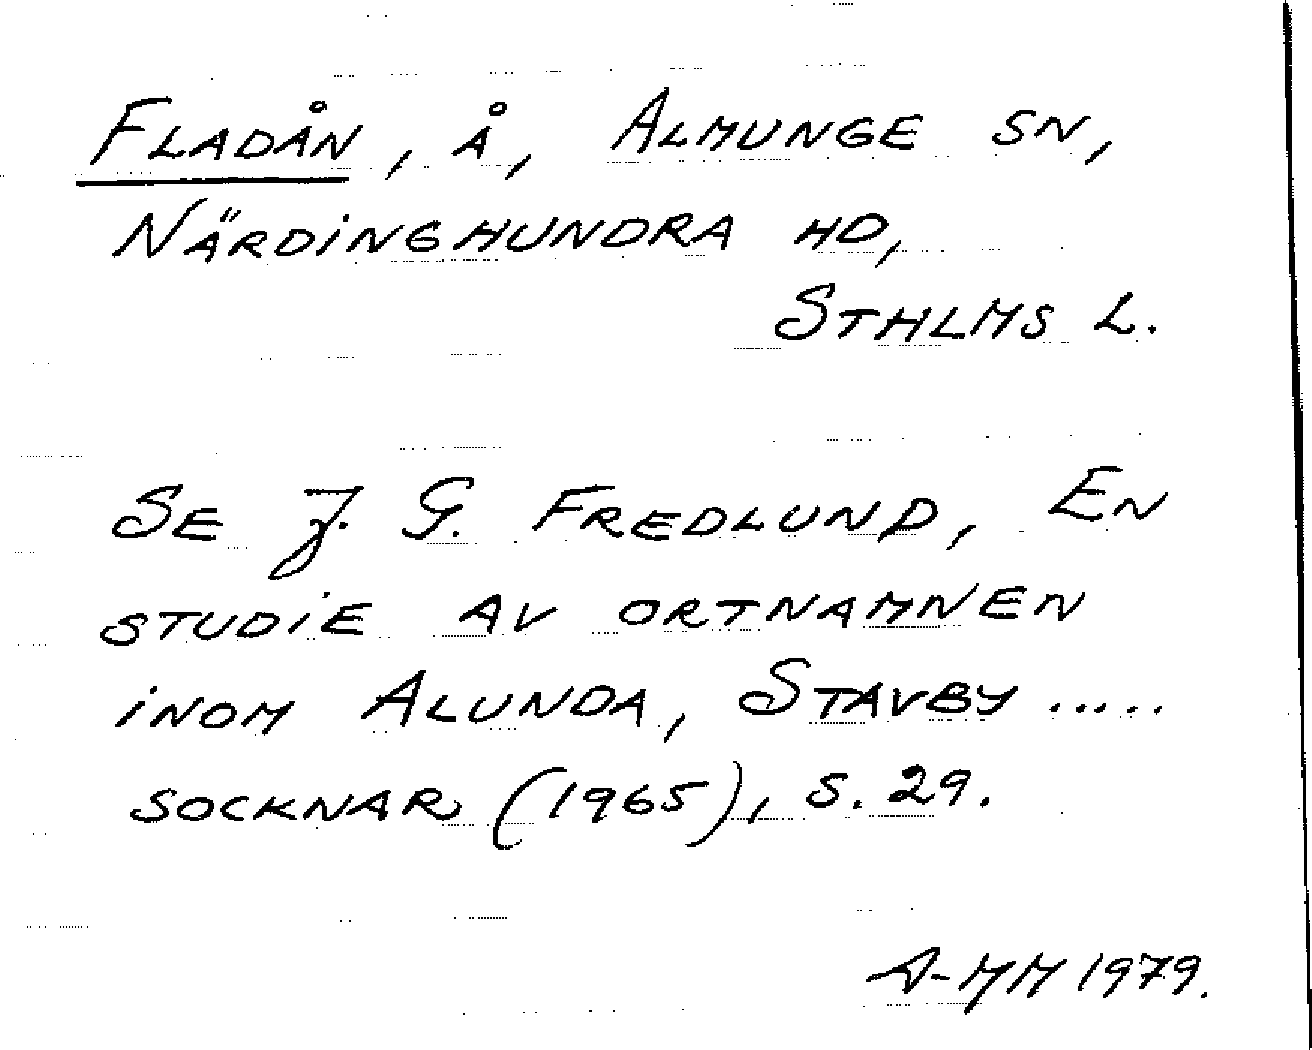 FLADÅN, Å, ALMUNGE SN,
NÄRDINGHUNDRA HD,
STHLMS L.
SE J. G. FREDLUND, EN
STUDIE AV ORTNAMNEN
INOM ALUNDA, STAVBY .....
SOCKNAR (1965), S. 29.
A-MM 1979.